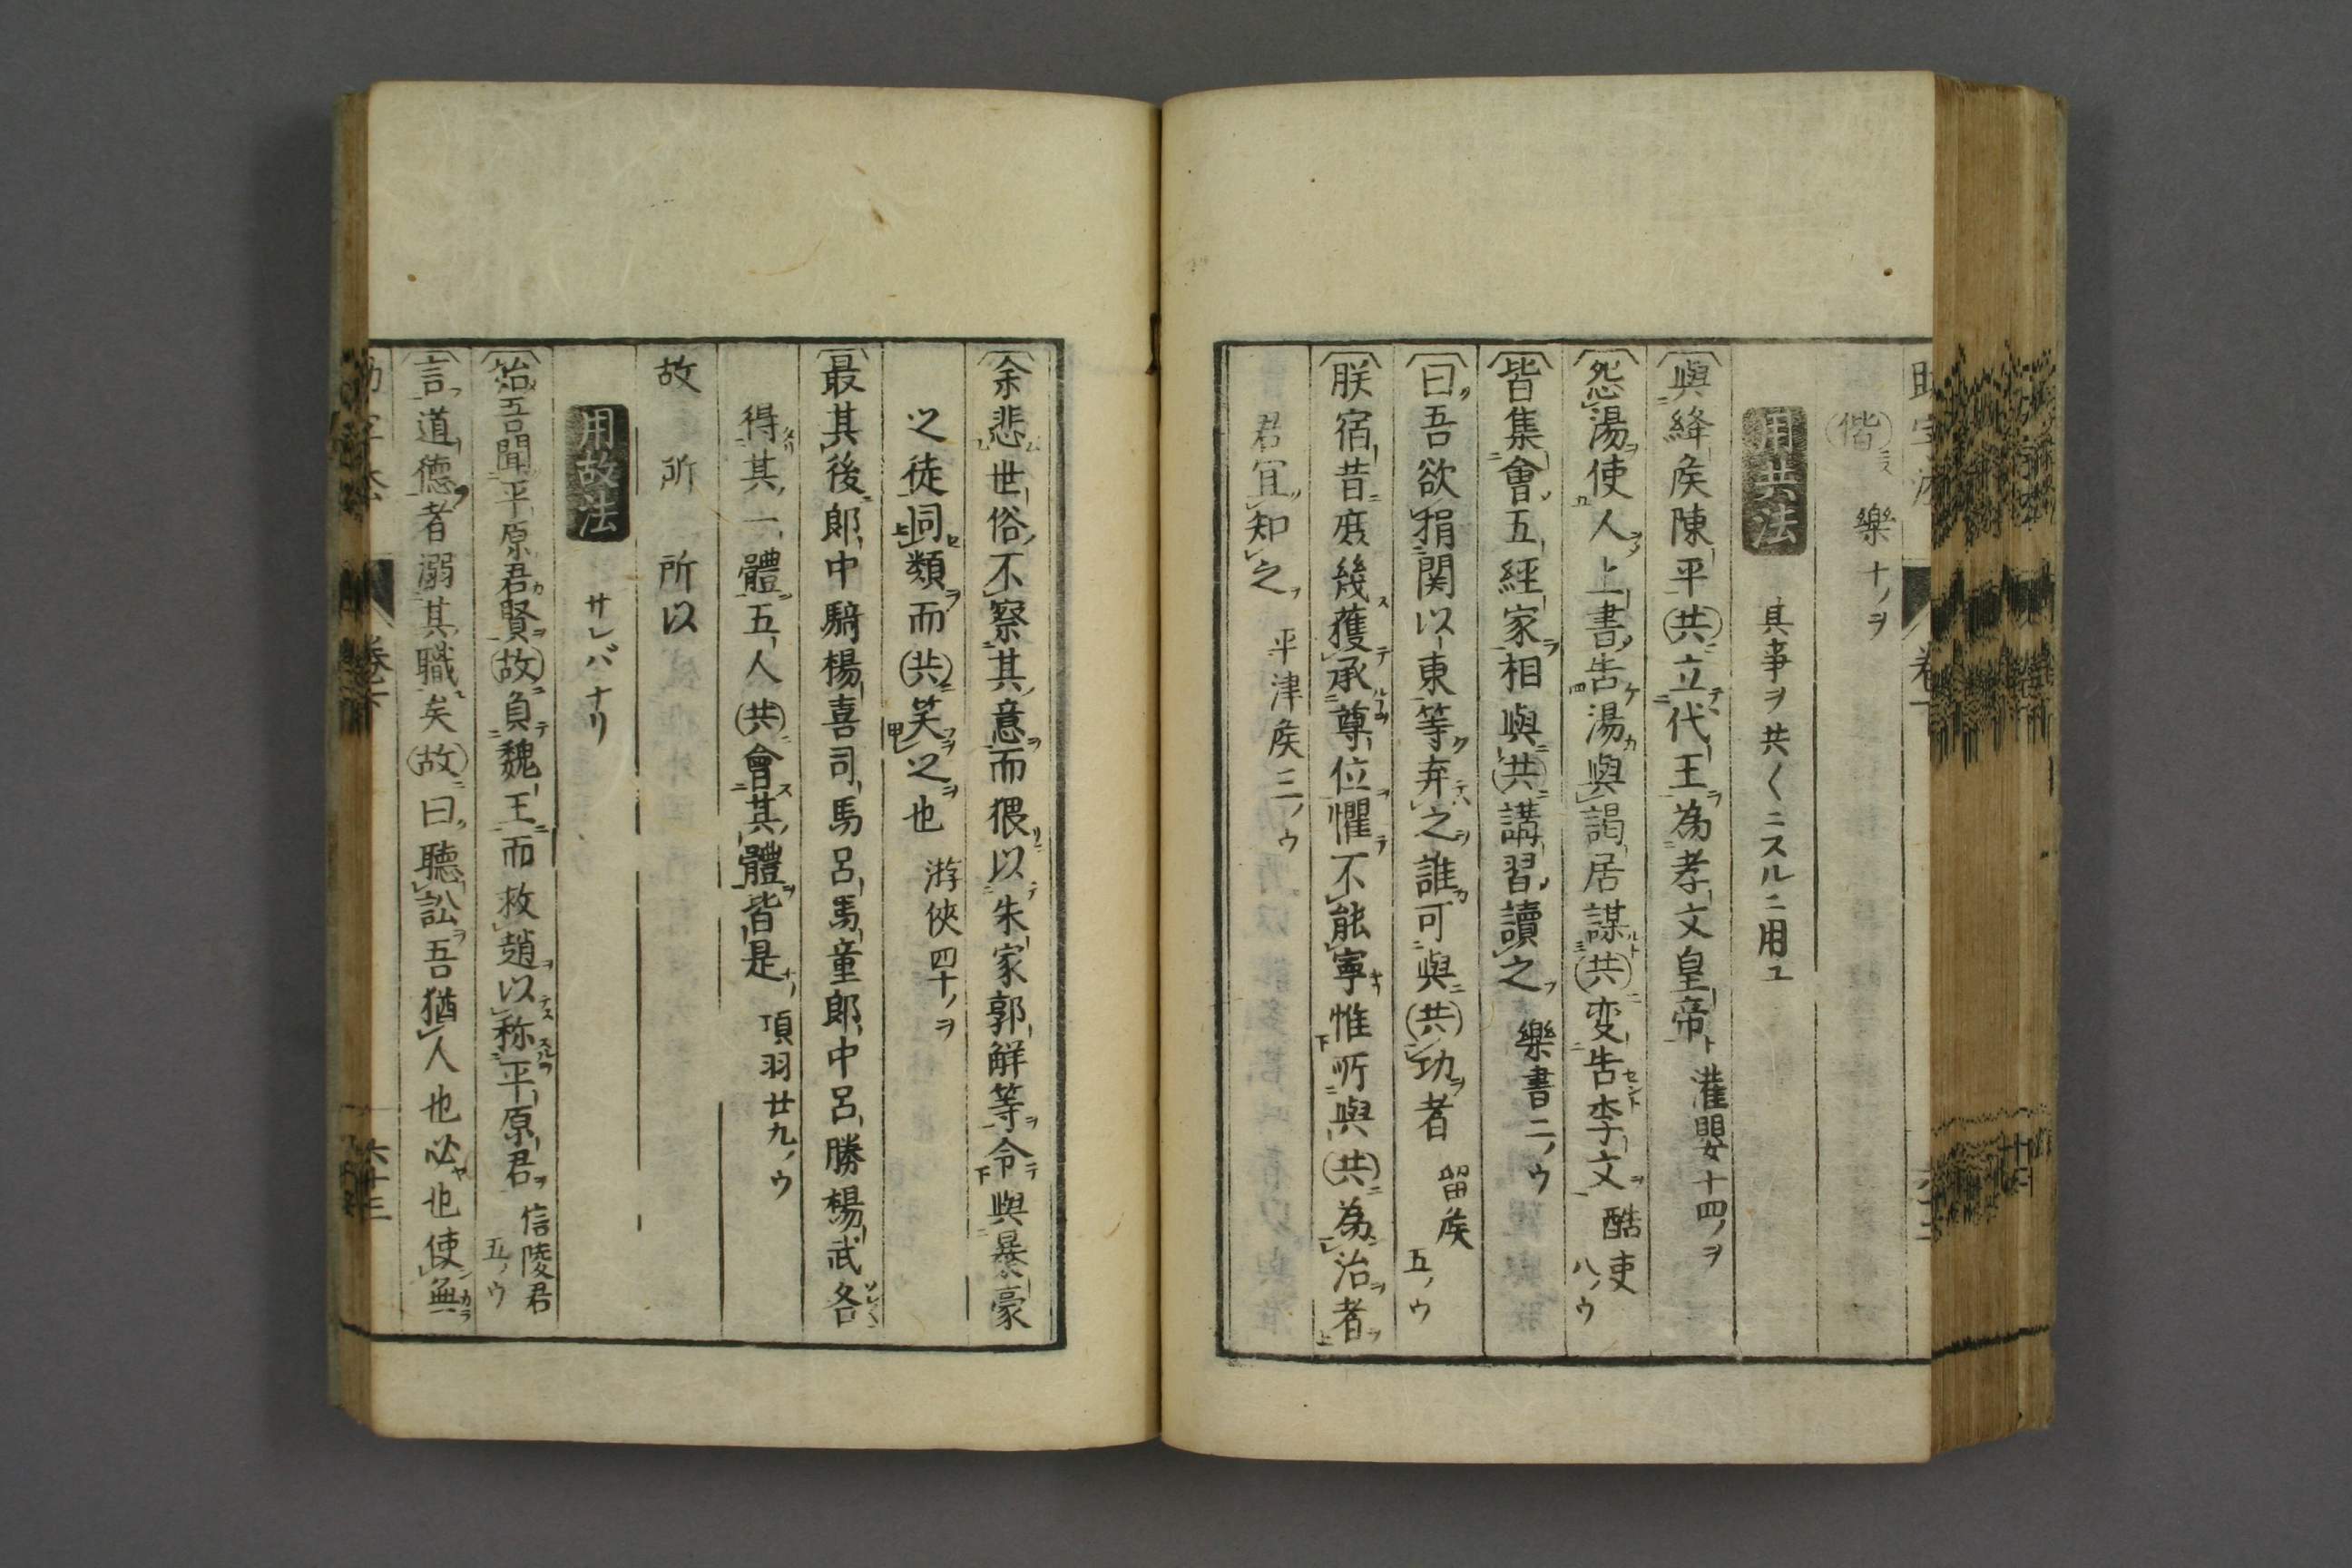 偕 樂十ノヲ
用共法 其事ヲ共〱ニスルニ用ユ
與絳矦陳平共立代王為孝文皇帝 灌嬰十四ノヲ
怨湯使人上書告湯與謁居謀共変告李文 酷吏八ノウ
皆集會五經家相與共講習讀之 樂書二ノウ
曰吾欲捐関以東等弃之誰可與共功者 留矦五ノウ
朕宿昔庻幾獲承尊位懼不能寧惟所與共為治者
君宜知之 平津矦三ノウ
余悲世俗不察其意而猥以朱家郭解等令與暴豪
之徒同類而共笑之也 游俠四十ノヲ
最其後郎中騎楊喜司馬呂馬童郎中呂勝楊武各
得其一體五人共會其體皆是 項羽廿九ノウ
故 所 所以
用故法 サレバナリ
始吾聞平原君賢故負魏王而救趙以称平原君 信陵君五ノウ
言道德者溺其職矣故曰聽訟吾猶人也必也使無